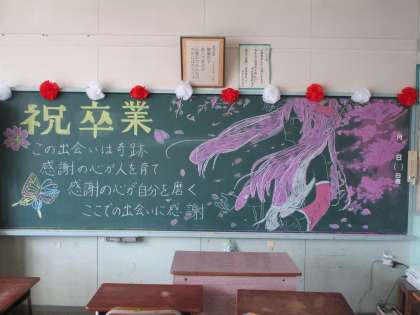 祝卒業
この出会いは奇跡
感謝の心が人を育て
感謝の心が自分を磨く
ここでの出会いに感謝
月
日( )
日直